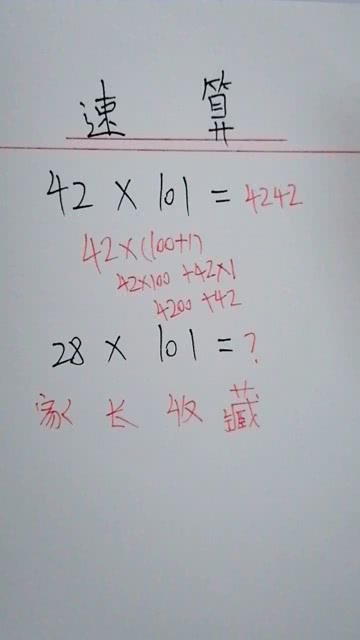 速 算
42 × 101 = 4242
42×(100+1)
42×100 +42×1
4200 +42
28 × 101 = ?
家 长 收 藏